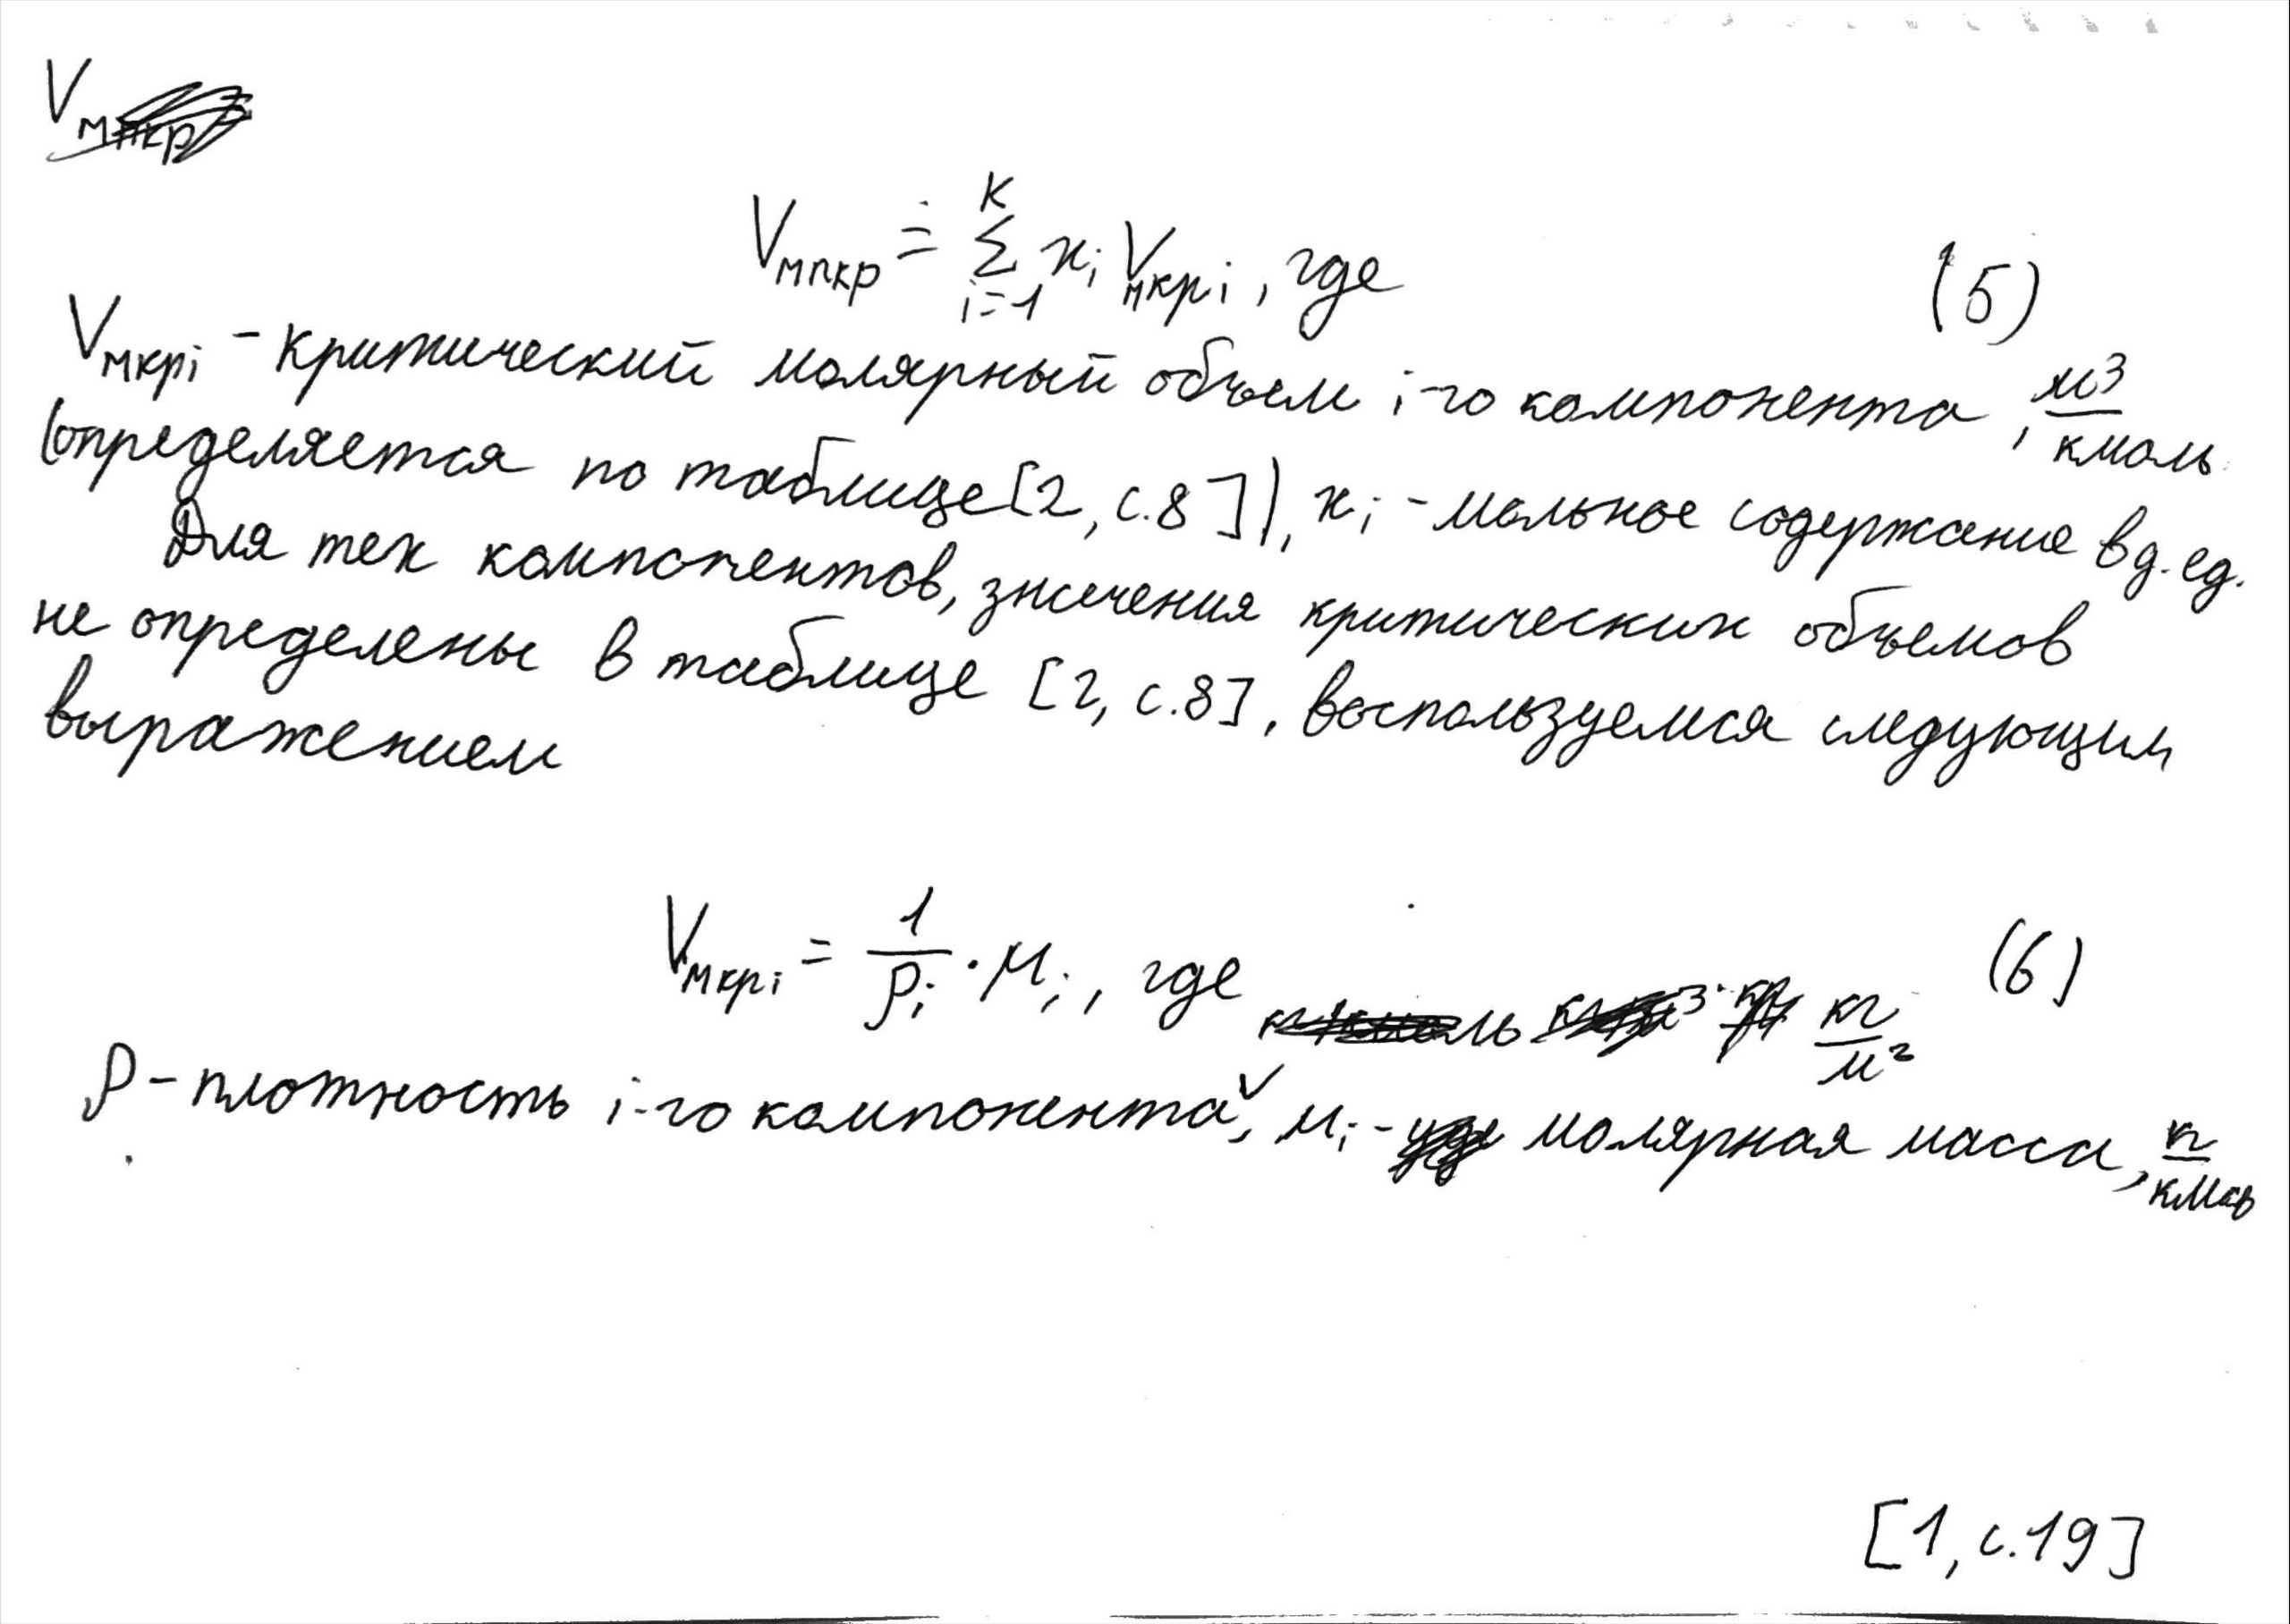 V
Vмпкр = Σ xi Vмкрi, где (5)
K
i=1
Vмкрi - критический молярный объем i-го компонента, м³/кмоль
(определяется по таблице [2, с.8]), xi - мольное содержание в д. ед.
Для тех компонентов, значения критических объемов
не определены в таблице [2, с.8], воспользуемся следующим
выражением
Vмкрi = 1/ρi · Mi, где (6)
кг/м²
ρ - плотность i-го компонента, Mi - молярная масса, кг/кмоль
[1, с.19]